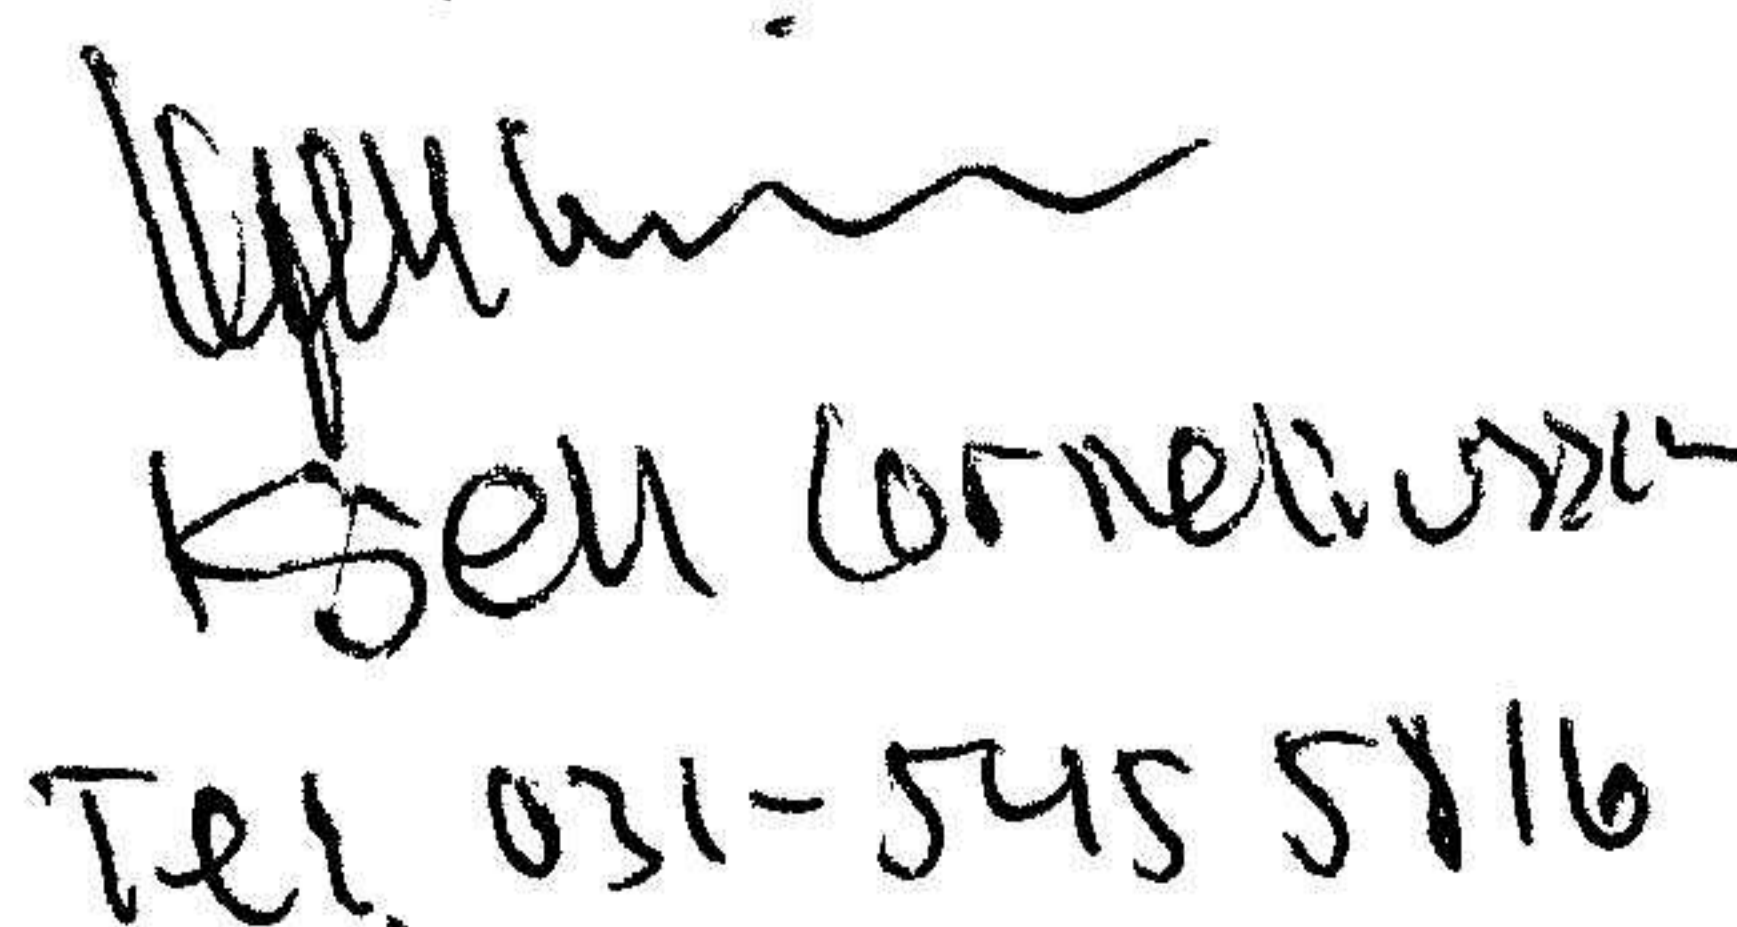 Kjell Corneliusson
Tel. 031-545 5816